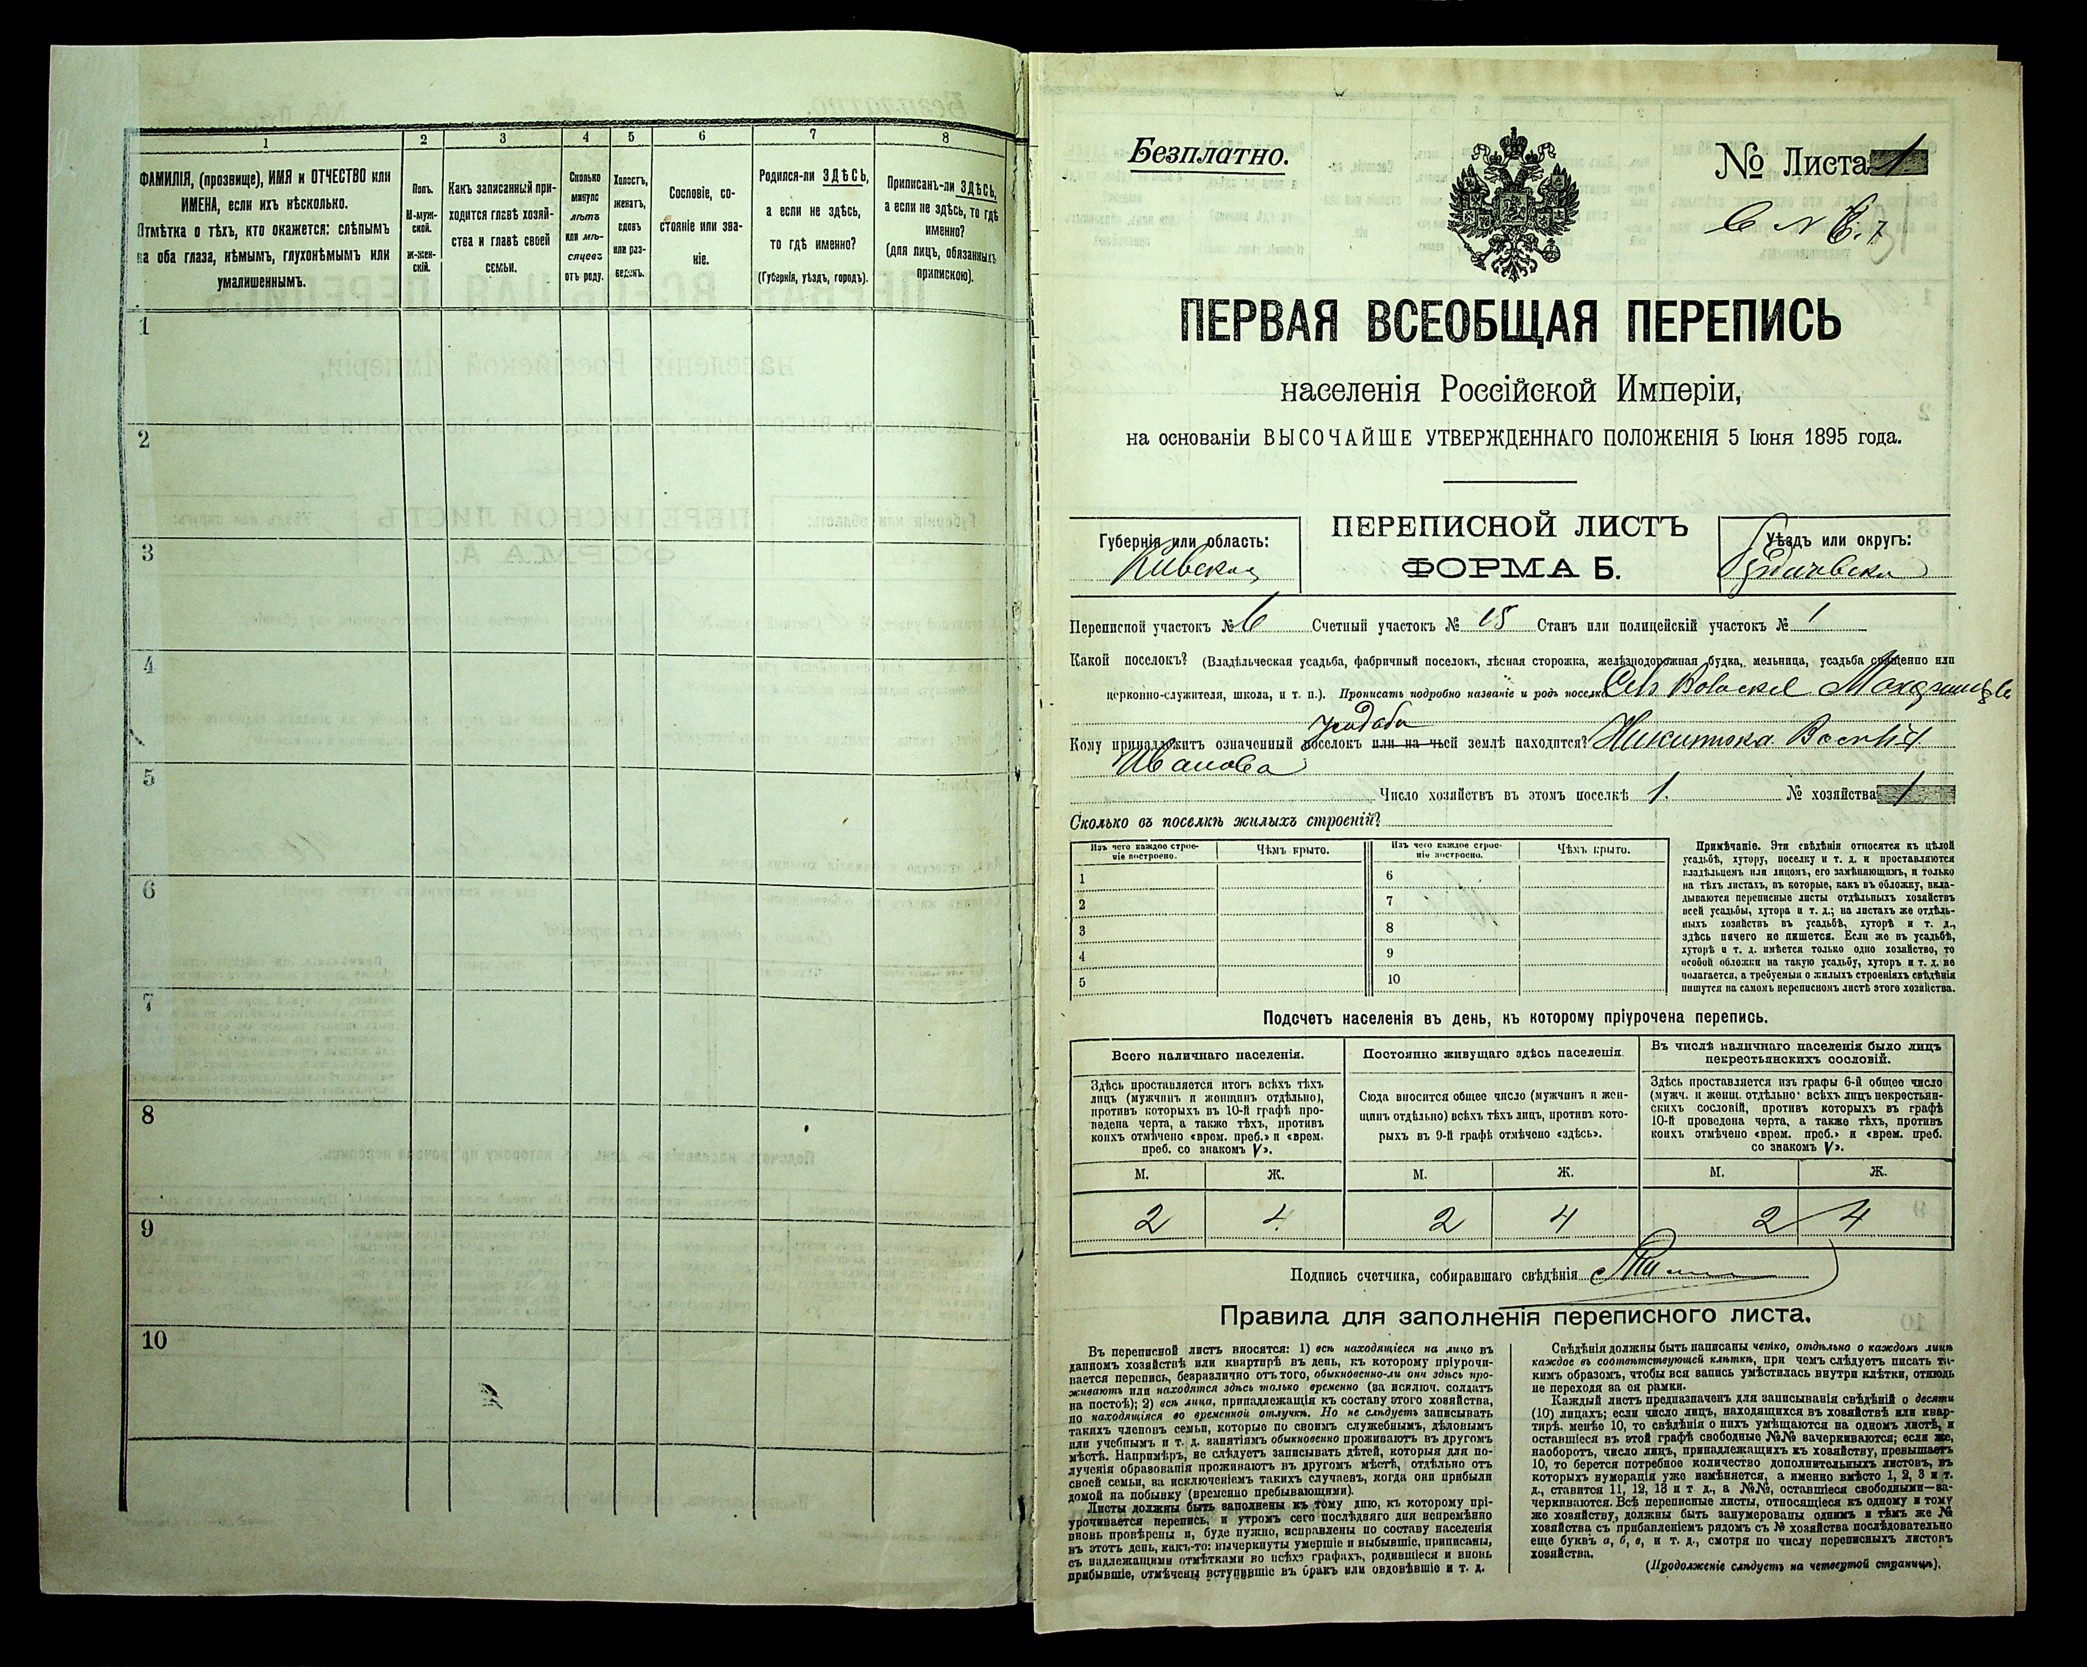 1
2
3
4
5
6
7
8
ФАМИЛІЯ, (прозвище), ИМЯ и ОТЧЕСТВО или
ИМЕНА, если ихъ нѣсколько.
Отмѣтка о тѣхъ, кто окажется: слѣпымъ
на оба глаза, нѣмымъ, глухонѣмымъ или
умалишеннымъ.
Полъ.
М-муж-
ской.
ж-жен-
скій.
Какъ записанный при-
ходится главѣ хозяй-
ства и главѣ своей
семьи.
Сколько
минуло
лѣтъ
или мѣ-
сяцевъ
отъ роду.
Холостъ,
женатъ,
вдовъ
или раз-
веденъ.
Сословіе, со-
стояніе или зва-
ніе.
Родился-ли ЗДѢСЬ,
а если не здѣсь,
то гдѣ именно?
(Губернія, уѣздъ, городъ).
Приписанъ-ли ЗДѢСЬ,
а если не здѣсь, то гдѣ
именно?
(для лицъ, обязанныхъ
припискою).
1
2
3
4
5
6
7
8
9
10
Безплатно.
№ Листа 1
ПЕРВАЯ ВСЕОБЩАЯ ПЕРЕПИСЬ
населенія Россійской Имперіи,
на основаніи ВЫСОЧАЙШЕ УТВЕРЖДЕННАГО ПОЛОЖЕНІЯ 5 Іюня 1895 года.
Губернія или область:
Кіевская
ПЕРЕПИСНОЙ ЛИСТЪ
ФОРМА Б.
Уѣздъ или округъ:
Переписной участокъ № 6 Счетный участокъ № 15 Станъ или полицейскій участокъ № 1
Какой поселокъ? (Владѣльческая усадьба, фабричный поселокъ, лѣсная сторожка, желѣзнодорожная будка, мельница, усадьба священно или
церковно-служителя, школа, и т. п.). Прописать подробно названіе и родъ поселка
усадьба
Кому принадлежитъ означенный поселокъ или на чьей землѣ находится? Никитюка
Иванова
Число хозяйствъ въ этомъ поселкѣ 1. № хозяйства 1
Сколько въ поселкѣ жилыхъ строеній?
Изъ чего каждое строе-
ніе построено.
Чѣмъ крыто.
Изъ чего каждое строе-
ніе построено.
Чѣмъ крыто.
1
2
3
4
5
6
7
8
9
10
Примѣчаніе. Эти свѣдѣнія относятся къ цѣлой
усадьбѣ, хутору, поселку и т. д. и проставляются
владѣльцемъ или лицомъ, его замѣняющимъ, и только
на тѣхъ листахъ, въ которые, какъ въ обложку, вкла-
дываются переписные листы отдѣльныхъ хозяйствъ
всей усадьбы, хутора и т. д.; на листахъ же отдѣль-
ныхъ хозяйствъ въ усадьбѣ, хуторѣ и т. д.,
здѣсь ничего не пишется. Если же въ усадьбѣ,
хуторѣ и т. д. имѣется только одно хозяйство, то
особой обложки на такую усадьбу, хуторъ и т. д. не
полагается, а требуемыя о жилыхъ строеніяхъ свѣдѣнія
пишутся на самомъ переписномъ листѣ этого хозяйства.
Подсчетъ населенія въ день, къ которому пріурочена перепись.
Всего наличнаго населенія.
Здѣсь проставляется итогъ всѣхъ тѣхъ
лицъ (мужчинъ и женщинъ отдѣльно),
противъ которыхъ въ 10-й графѣ про-
ведена черта, а также тѣхъ, противъ
коихъ отмѣчено «врем. преб.» и «врем.
преб. со знакомъ V».
Постоянно живущаго здѣсь населенія.
Сюда вносится общее число (мужчинъ и жен-
щинъ отдѣльно) всѣхъ тѣхъ лицъ, противъ кото-
рыхъ въ 9-й графѣ отмѣчено «здѣсь».
Въ числѣ наличнаго населенія было лицъ
некрестьянскихъ сословій.
Здѣсь проставляется изъ графы 6-й общее число
(мужч. и женщ. отдѣльно) всѣхъ лицъ некрестьян-
скихъ сословій, противъ которыхъ въ графѣ
10-й проведена черта, а также тѣхъ, противъ
коихъ отмѣчено «врем. преб.» и «врем. преб.
со знакомъ V».
М. Ж. М. Ж. М. Ж.
2 4 2 4 2 4
Подпись счетчика, собиравшаго свѣдѣнія
Правила для заполненія переписного листа.
Въ переписной листъ вносятся: 1) всѣ находящіеся на лицо въ
данномъ хозяйствѣ или квартирѣ въ день, къ которому пріурочи-
вается перепись, безразлично отъ того, обыкновенно-ли они здѣсь про-
живаютъ или находятся здѣсь только временно (за исключ. солдатъ
на постоѣ); 2) всѣ лица, принадлежащія къ составу этого хозяйства,
но находящіяся во временной отлучкѣ. Но не слѣдуетъ записывать
такихъ членовъ семьи, которые по своимъ служебнымъ, дѣловымъ
или учебнымъ и т. д. занятіямъ обыкновенно проживаютъ въ другомъ
мѣстѣ. Напримѣръ, не слѣдуетъ записывать дѣтей, которыя для по-
лученія образованія проживаютъ въ другомъ мѣстѣ, отдѣльно отъ
своей семьи, за исключеніемъ такихъ случаевъ, когда они прибыли
домой на побывку (временно пребывающими).
Листы должны быть заполнены къ тому дню, къ которому прі-
урочивается перепись, и утромъ сего послѣдняго дня непремѣнно
вновь провѣрены и, буде нужно, исправлены по составу населенія
въ этотъ день, какъ-то: вычеркнуты умершіе и выбывшіе, приписаны,
съ надлежащими отмѣтками во всѣхъ графахъ, родившіеся и вновь
прибывшіе, отмѣчены вступившіе въ бракъ или овдовѣвшіе и т. д.
Свѣдѣнія должны быть написаны четко, отдѣльно о каждомъ лицѣ
каждое въ соотвѣтствующей клѣткѣ, при чемъ слѣдуетъ писать та-
кимъ образомъ, чтобы вся запись умѣстилась внутри клѣтки, отнюдь
не переходя за ея рамки.
Каждый листъ предназначенъ для записыванія свѣдѣній о десяти
(10) лицахъ; если число лицъ, находящихся въ хозяйствѣ или квар-
тирѣ, менѣе 10, то свѣдѣнія о нихъ умѣщаются на одномъ листѣ, и
оставшіеся въ этой графѣ свободные №№ зачеркиваются; если же,
наоборотъ, число лицъ, принадлежащихъ къ хозяйству, превышаетъ
10, то берется потребное количество дополнительныхъ листовъ, въ
которыхъ нумерація уже измѣняется, а именно вмѣсто 1, 2, 3 и т.
д., ставится 11, 12, 13 и т. д., а №№, оставшіеся свободными—за-
черкиваются. Всѣ переписные листы, относящіеся къ одному и тому
же хозяйству, должны быть занумерованы однимъ и тѣмъ же №
хозяйства съ прибавленіемъ рядомъ съ № хозяйства послѣдовательно
еще буквъ а, б, в, и т. д., смотря по числу переписныхъ листовъ
хозяйства.
(Продолженіе слѣдуетъ на четвертой страницѣ).